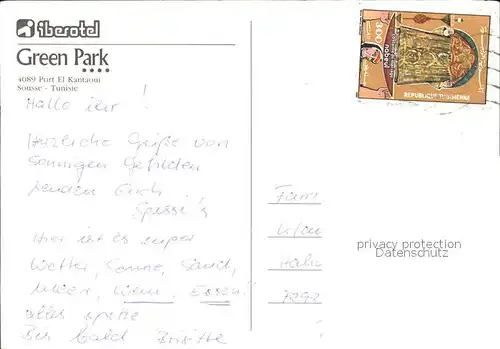 iberotel
Green Park
4089 Port El Kantaoui
Sousse - Tunisie
Hallo ihr !
Herzliche Grüße von
sonnigen Gefilden
senden Euch
Hier ist es super
Wetter, Sonne, Sand,
Meer, Wein, Essen!!
alles spitze
Bis bald Brigitte
Fam
Klau
7292
privacy protection
Datenschutz
REPUBLIQUE TUNISIENNE
300